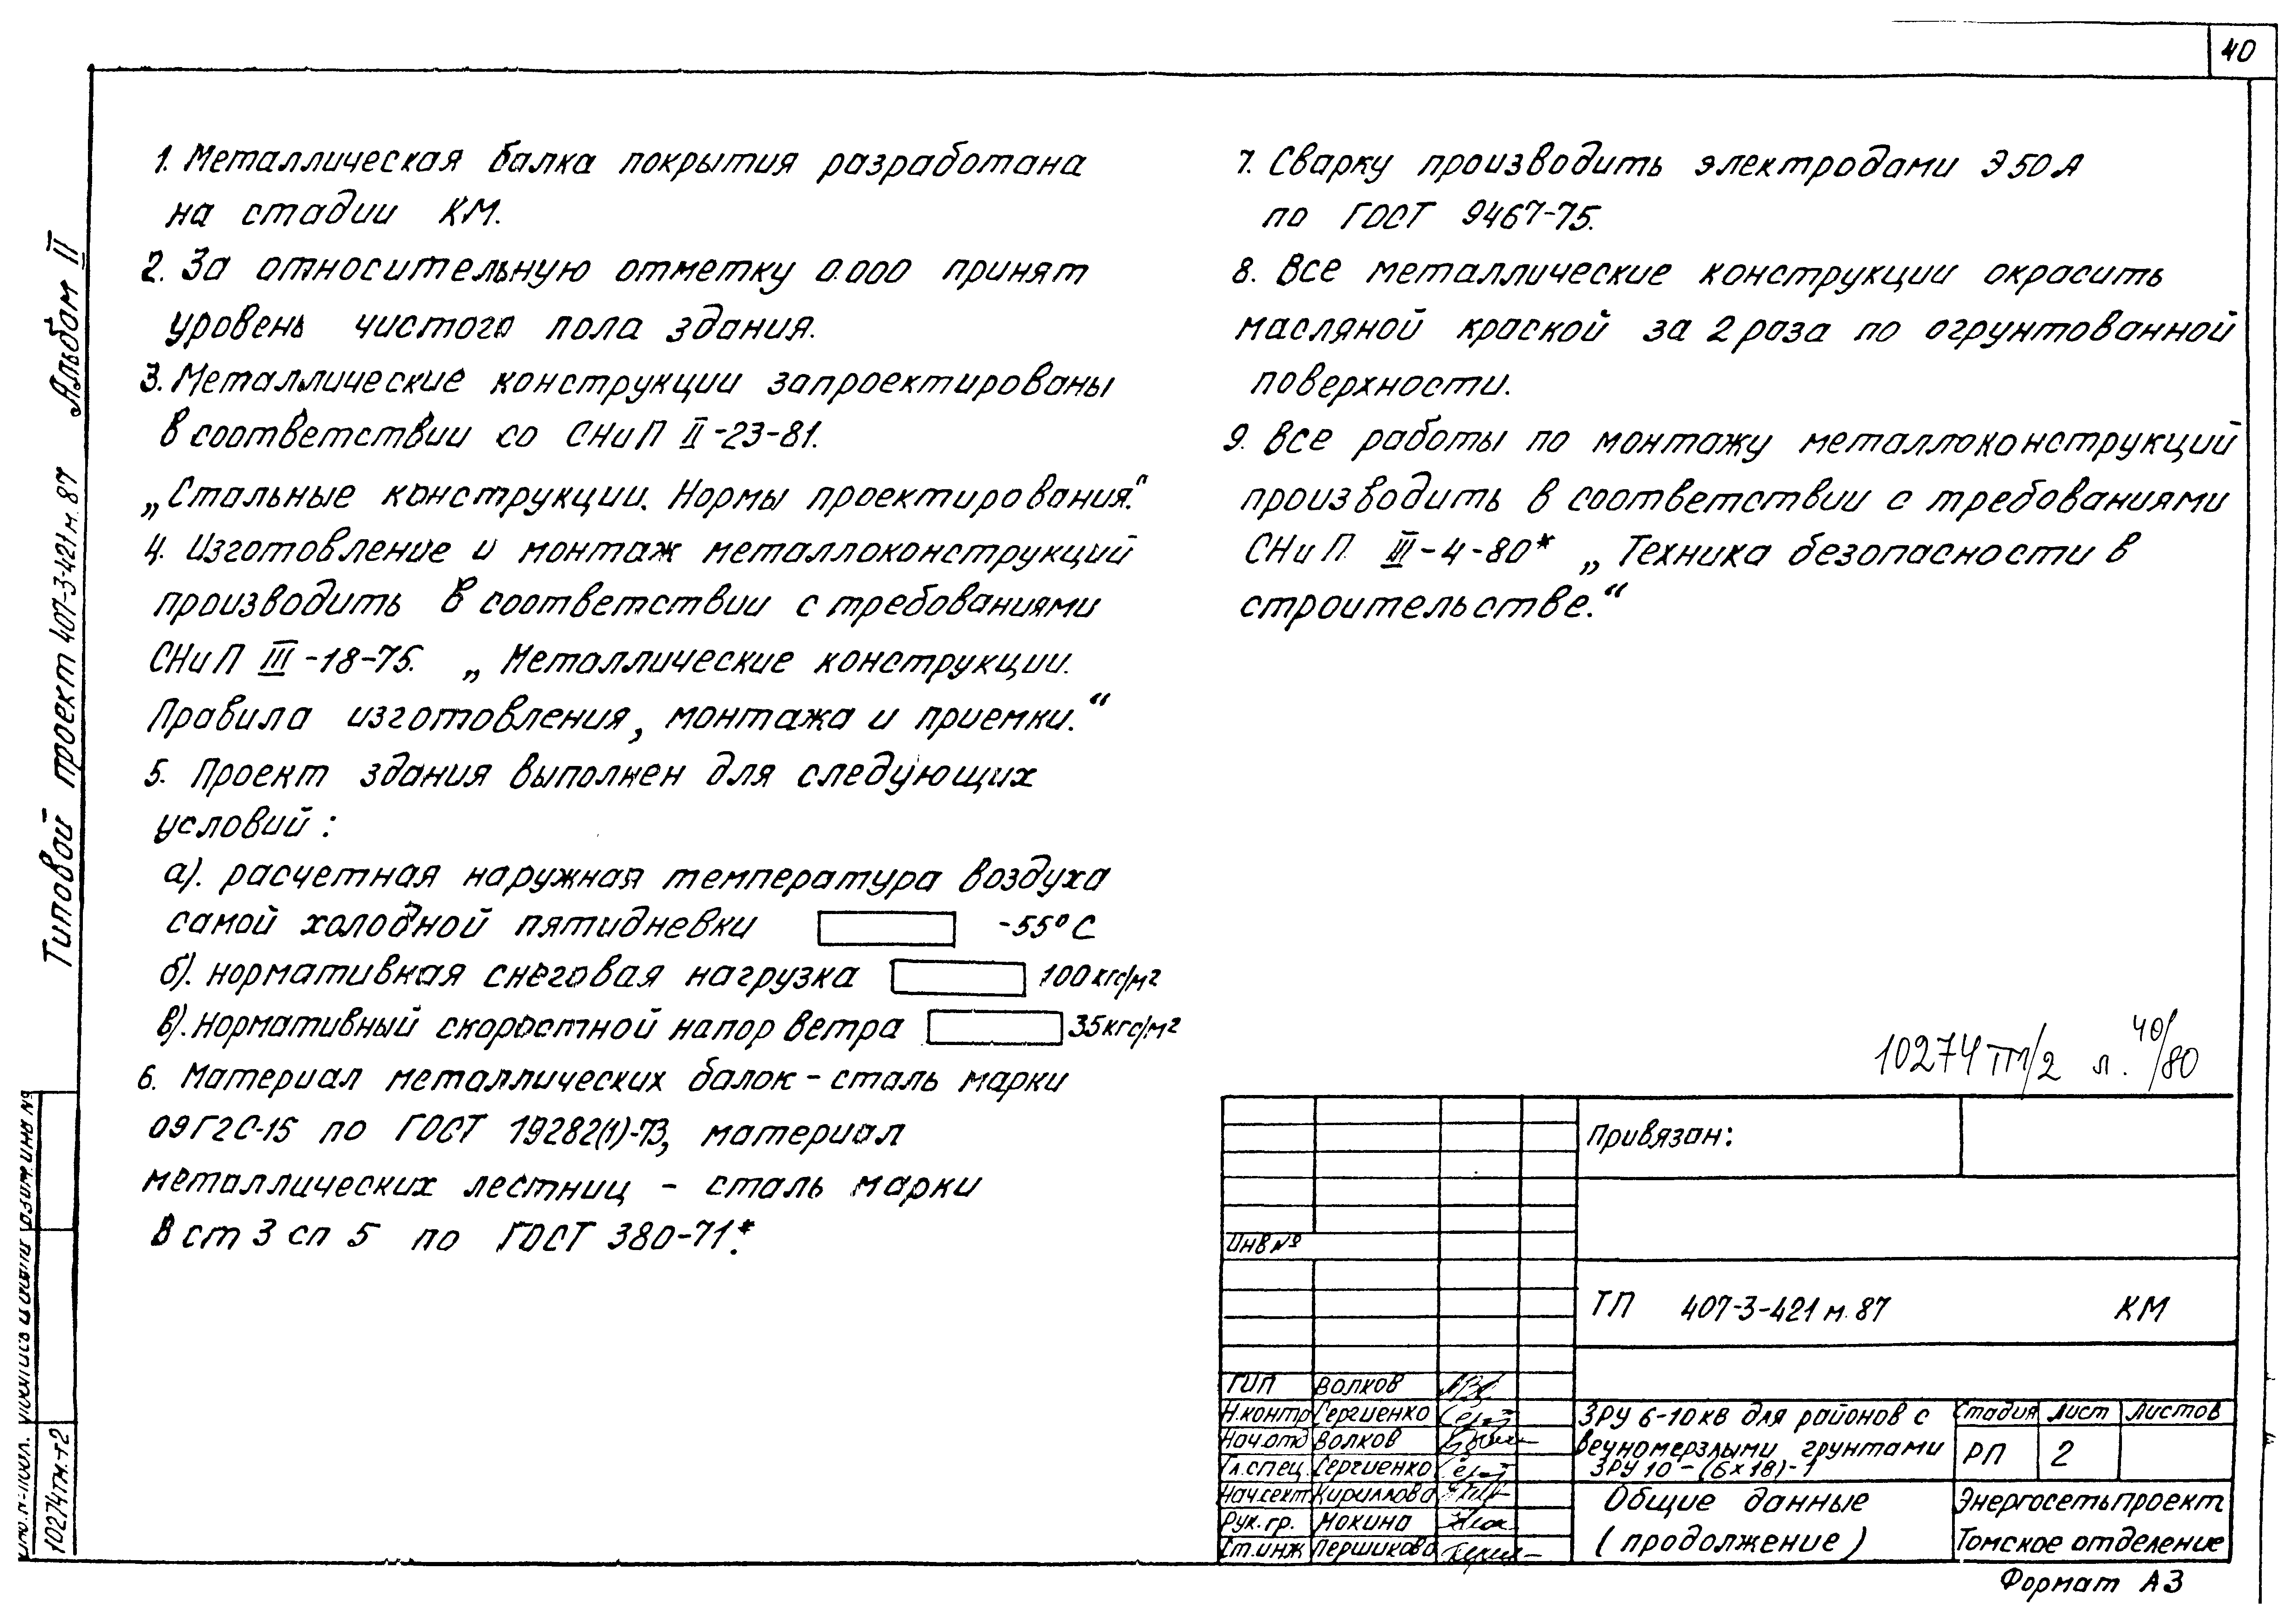 40
1. Металлическая балка покрытия разработана
на стадии КМ.
2. За относительную отметку 0.000 принят
уровень чистого пола здания.
3. Металлические конструкции запроектированы
в соответствии со СНиП II-23-81.
„Стальные конструкции. Нормы проектирования.“
4. Изготовление и монтаж металлоконструкций
производить в соответствии с требованиями
СНиП III-18-75. „Металлические конструкции.
Правила изготовления, монтажа и приемки.“
5. Проект здания выполнен для следующих
условий:
а). расчетная наружная температура воздуха
самой холодной пятидневки -55°С
б). нормативная снеговая нагрузка 100кгс/м²
в). нормативный скоростной напор ветра 35кгс/м²
6. Материал металлических балок - сталь марки
09Г2С-15 по ГОСТ 19282(1)-73, материал
металлических лестниц - сталь марки
В ст 3 сп 5 по ГОСТ 380-71*.
7. Сварку производить электродами Э50А
по ГОСТ 9467-75.
8. Все металлические конструкции окрасить
масляной краской за 2 раза по огрунтованной
поверхности.
9. Все работы по монтажу металлоконструкций
производить в соответствии с требованиями
СНиП III-4-80* „Техника безопасности в
строительстве.“
Типовой проект 407-3-421 м. 87 Альбом II
10274тм-т2
10274тм/2 л. 40/80
Привязан:
Инв №
ТП 407-3-421 м. 87 КМ
ГИП Волков
Н.контр Сергиенко
Нач.отд Волков
Гл.спец. Сергиенко
Нач.сект Кириллова
Рук. гр. Мокина
Ст.инж Першикова
ЗРУ 6-10кв для районов с
вечномерзлыми грунтами
ЗРУ 10-(6х18)-1
Стадия Лист Листов
РП 2
Общие данные
(продолжение)
Энергосетьпроект
Томское отделение
Формат А3